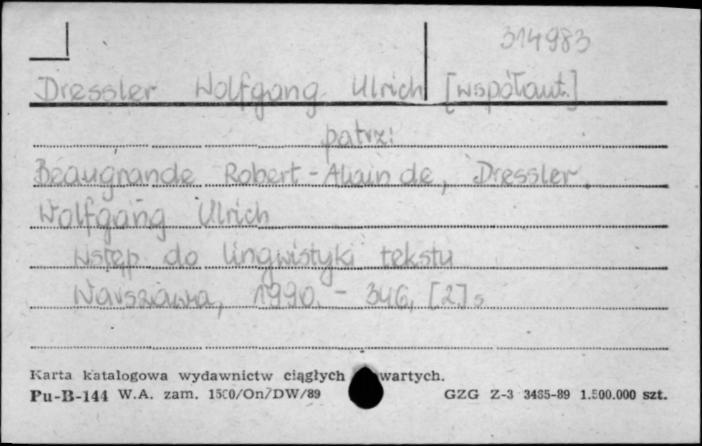 314983
Dressler Wolfgang Ulrich [współaut.]
patrz:
Beaugrande Robert-Aliain de, Dressler
Wolfgang Ulrich
Wstęp do lingwistyki tekstu
Warszawa, 1990. - 346, [2] s
Karta katalogowa wydawnictw ciągłych wartych.
Pu-B-144 W.A. zam. 1500/On/DW/89 GZG Z-3 3485-89 1.500.000 szt.